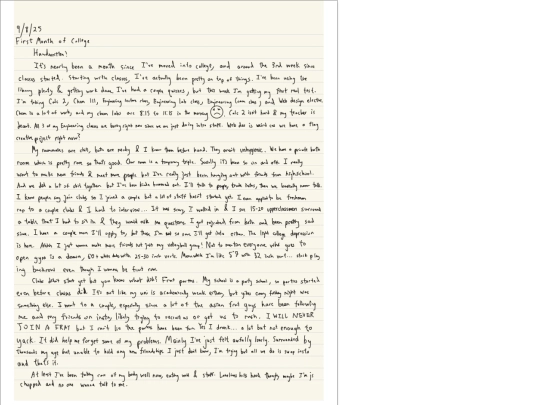 9/8/25
First Month of College
Handwritten!
It's nearly been a month since I've moved into college, and around the 3rd week since
classes started. Starting with classes, I've actually been pretty on top of things. I've been using the
library plenty & getting work done. I've had a couple quizzes, but this week I'm getting my first real test.
I'm taking Calc 2, Chem 111, Engineering class, Engineering Lab class, Engineering (comm class) and Web design elective
Chem is a lot of work, and my chem labs are 8:15 to 11:15 in the morning Calc 2 isn't bad & my teacher is
great. All of my Engineering classes are we're just doing intro stuff. Web dev is which we have a
creative project right now!
My roommates are chill, both are & I knew them before hand. They aren't . We have a private bath
room which is pretty rare so that's good. Our room is a temporary triple. Socially it's been so on and off. I really
want to make new friends & meet more people but I've really just been hanging out with friends from highschool.
And we did a lot of chill together but I've been kinda burned out. I'll talk to people then we basically never talk.
I know people say join clubs so I joined a couple but a lot of stuff hasn't started yet. I even applied to be freshman
rep to a couple clubs & I had to interview... It was scary, I walked in & I see 15-20 upperclassmen surround
a table that I had to sit in & they would ask me questions. I got rejected from both and been pretty sad
since. I have a couple more I'll apply to, but I'm not so sure I'll get into either. The college depression
is here. I just wanna make more friends not just my volleyball group! Not to mention everyone who goes to
open gym is a demon, 6'0+ with 25-30 inch verts. Meanwhile I'm like 5'9 with 32 inch vert... stuck play
ing backrow even though I wanna be front row.
Clubs didn't start yet but you know what did? Frat parties. My school is a party school, so parties started
even before classes did. It's not like my uni is academically weak either, but friday night was
something else. I went to a couple, especially since a lot of the asian frat guys have been following
me and my friends on insta, likely trying to recruit us or get us to rush. I WILL NEVER
JOIN A FRAT but I can't lie the parties have been fun. I drank... a lot but not enough to
yack. It did help me forget some of my problems. Mainly I've just felt awfully lonely. Surrounded by
thousands my age but unable to hold any new friendships. I just don't know, I'm trying but all we do is swap insta
and that's it.
At least I've been taking care of my body well now, eating well & stuff. Loneliness hits hard though, maybe I'm just
chopped and no one wanna talk to me.